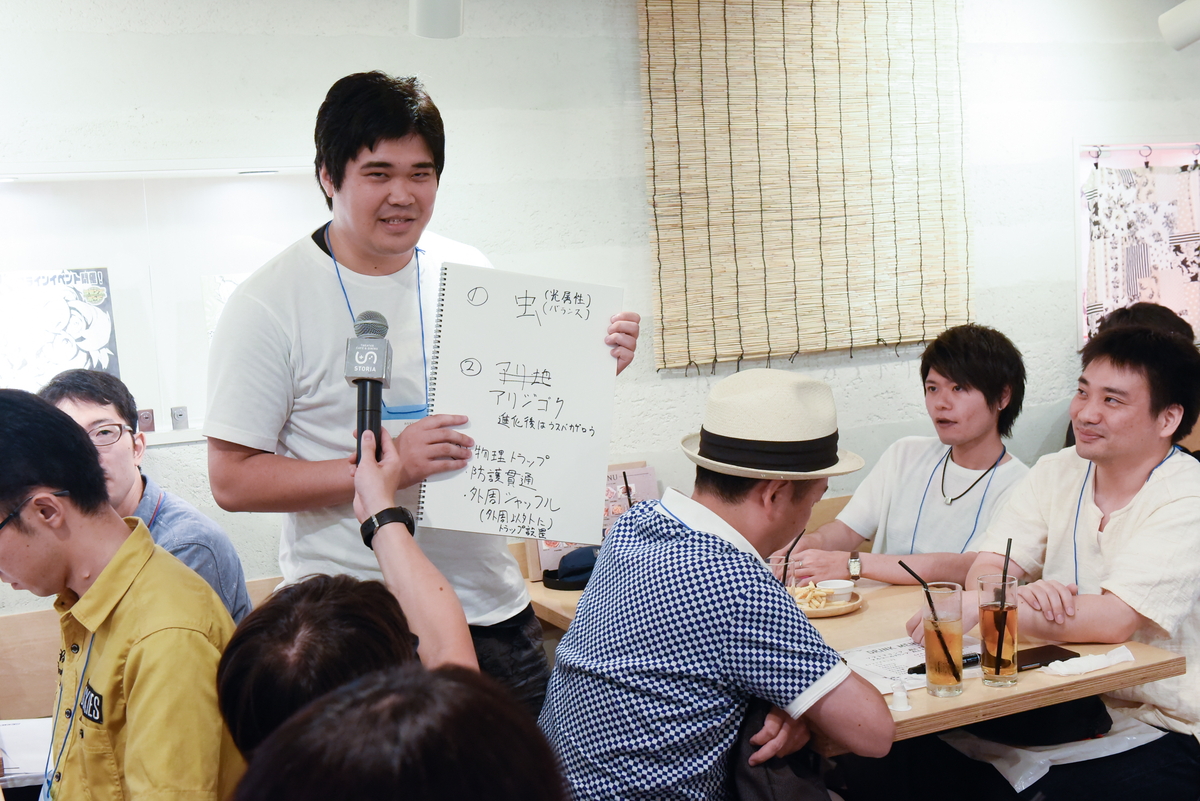 ① 虫 (光属性)
(バランス)
② アリ地
アリジゴク
進化後はウスバカゲロウ
・物理トラップ
・防護貫通
・外周シャッフル
(外周以外に)
トラップ設置
STORIA
インイベント開催!
DRINK ME
MENU